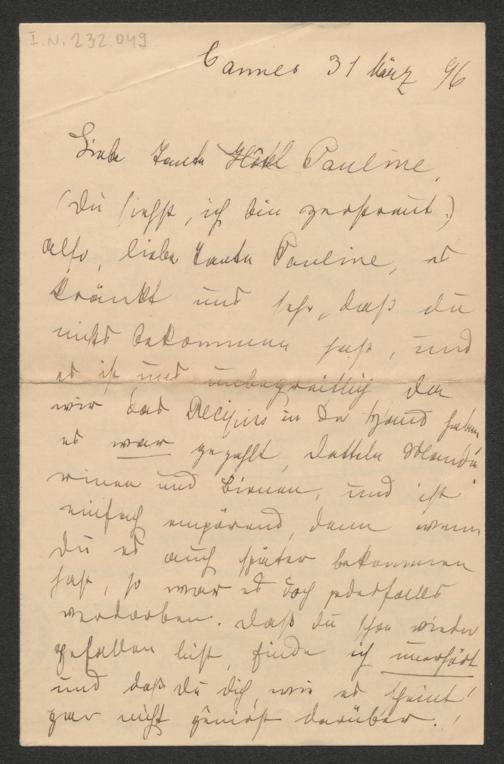 I.N. 232.049
Cannes 31 März 96
Liebe Tante Hôtel Pauline,
(Du siehst, ich bin zerstreut.)
also, liebe Tante Pauline, es
kränkt uns sehr, daß du
nichts bekommen hast, und
es ist uns unbegreiflich da
wir das Recipiss in der Hand haben
es war gezahlt, Datteln Manda
rinen und Birnen, und ist
einfach empörend, denn wenn
du es auch später bekommen
hast, so war es doch jedesfalls
verdorben. Daß du schon wieder
gefallen bist, finde ich unerhört
und daß du dich, wie es scheint
gar nicht genirst darüber.!